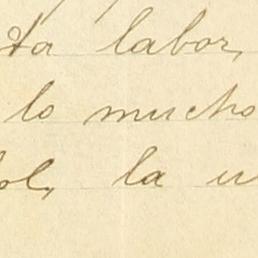 ta labor,
lo mucho
ol, la u